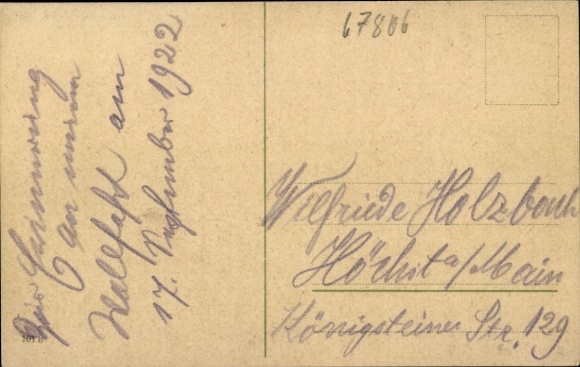 Zur Erinnerung
an meine
Wallfahrt am
17. September 1922
67806
Wilfriede Holzbach
Höchst a/Main
Königsteiner Str. 129